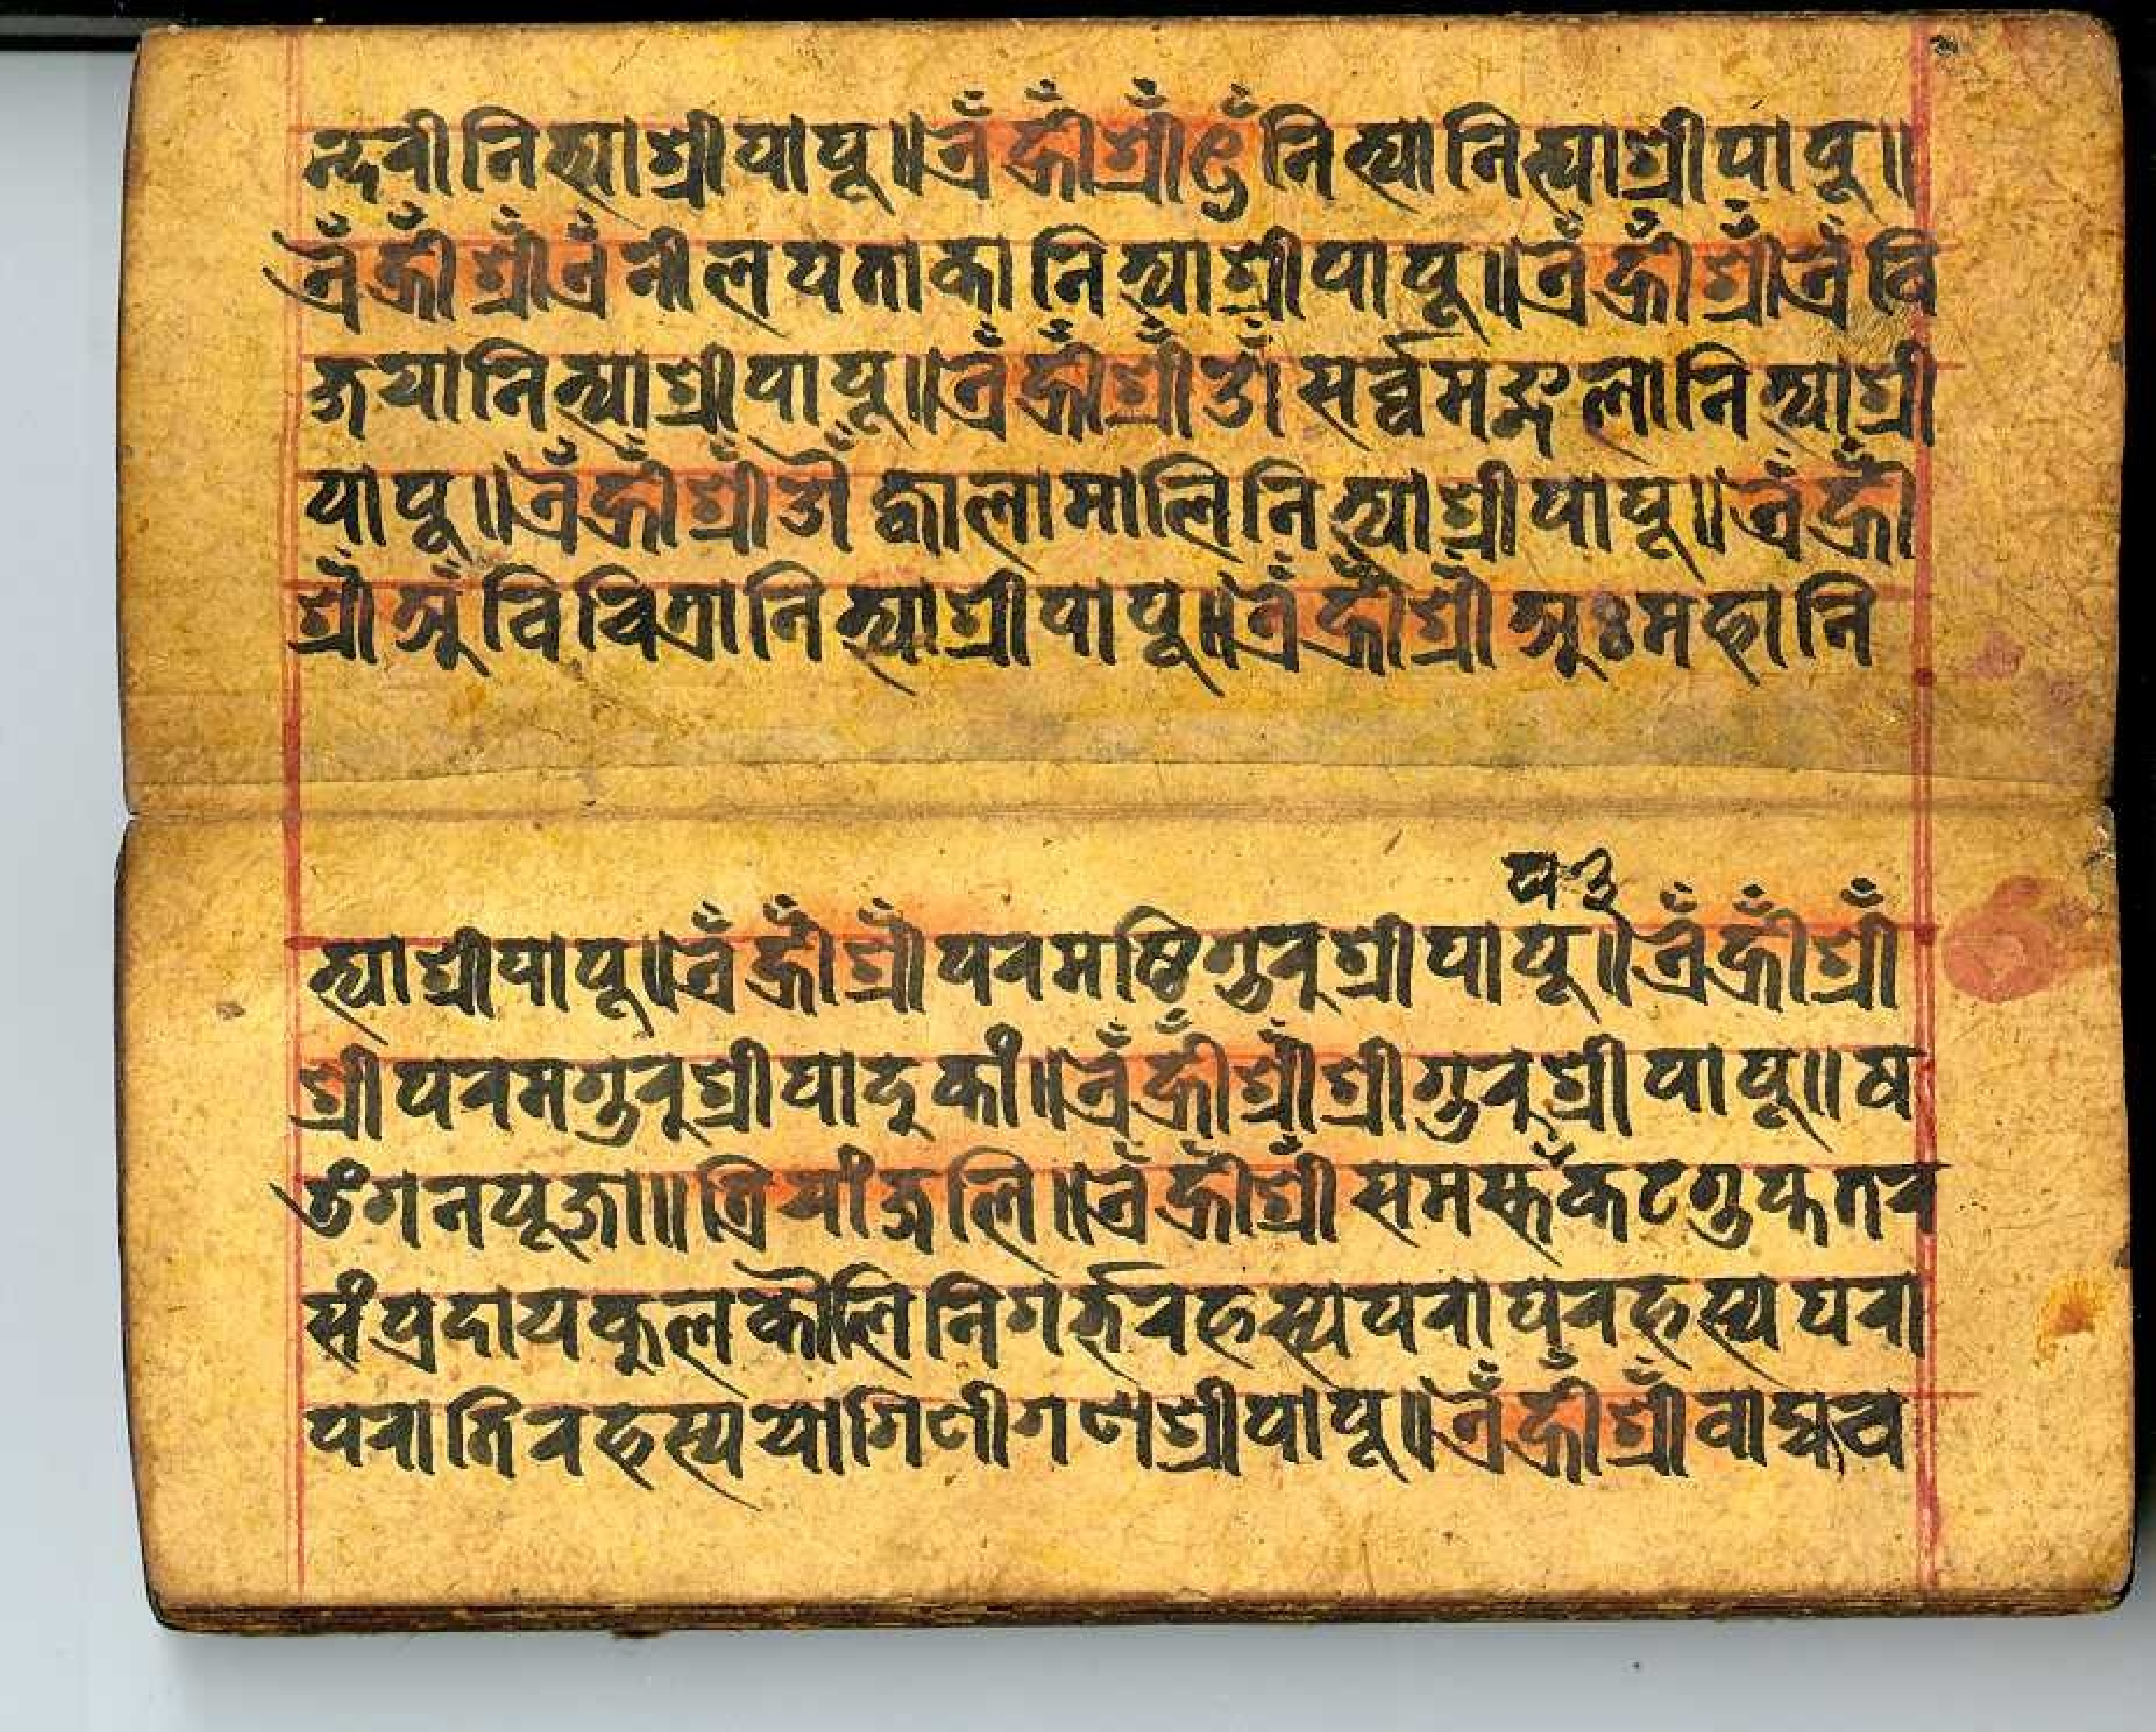 न्दरीनित्याश्रीपापू॥ऐँह्रीँश्रीँएँनित्यानित्याश्रीपापू॥
ऐँह्रीँश्रीँऐँनीलपताकानित्याश्रीपापू॥ऐँह्रीँश्रीँऐँवि
जयानित्याश्रीपापू॥ऐँह्रीँश्रीँओँसर्व्वमङ्गलानित्याश्री
पापू॥ऐँह्रीँश्रीँऔँज्वालामालिनित्याश्रीपापू॥ऐँह्रीँ
श्रीँअँविचित्रानित्याश्रीपापू॥ऐँह्रीँश्रीँअःमहानि
त्याश्रीपापू॥ऐँह्रीँश्रीँपरमष्ठिगुरुश्रीपापू॥ऐँह्रीँश्रीँ
श्रीपरमगुरुश्रीपादुकां॥ऐँह्रीँश्रीँश्रीगुरुश्रीपापू॥ष
डंगनपूजा॥त्रियांजलि॥ऐँह्रीँश्रीँसमस्तँकटगुप्ततर
संप्रदायकुलकौलिनिगर्भरहस्यपरापुरहस्यपरा
परातिरहस्ययागिणीगणश्रीपापू॥ऐँह्रीँश्रीँवाग्भव